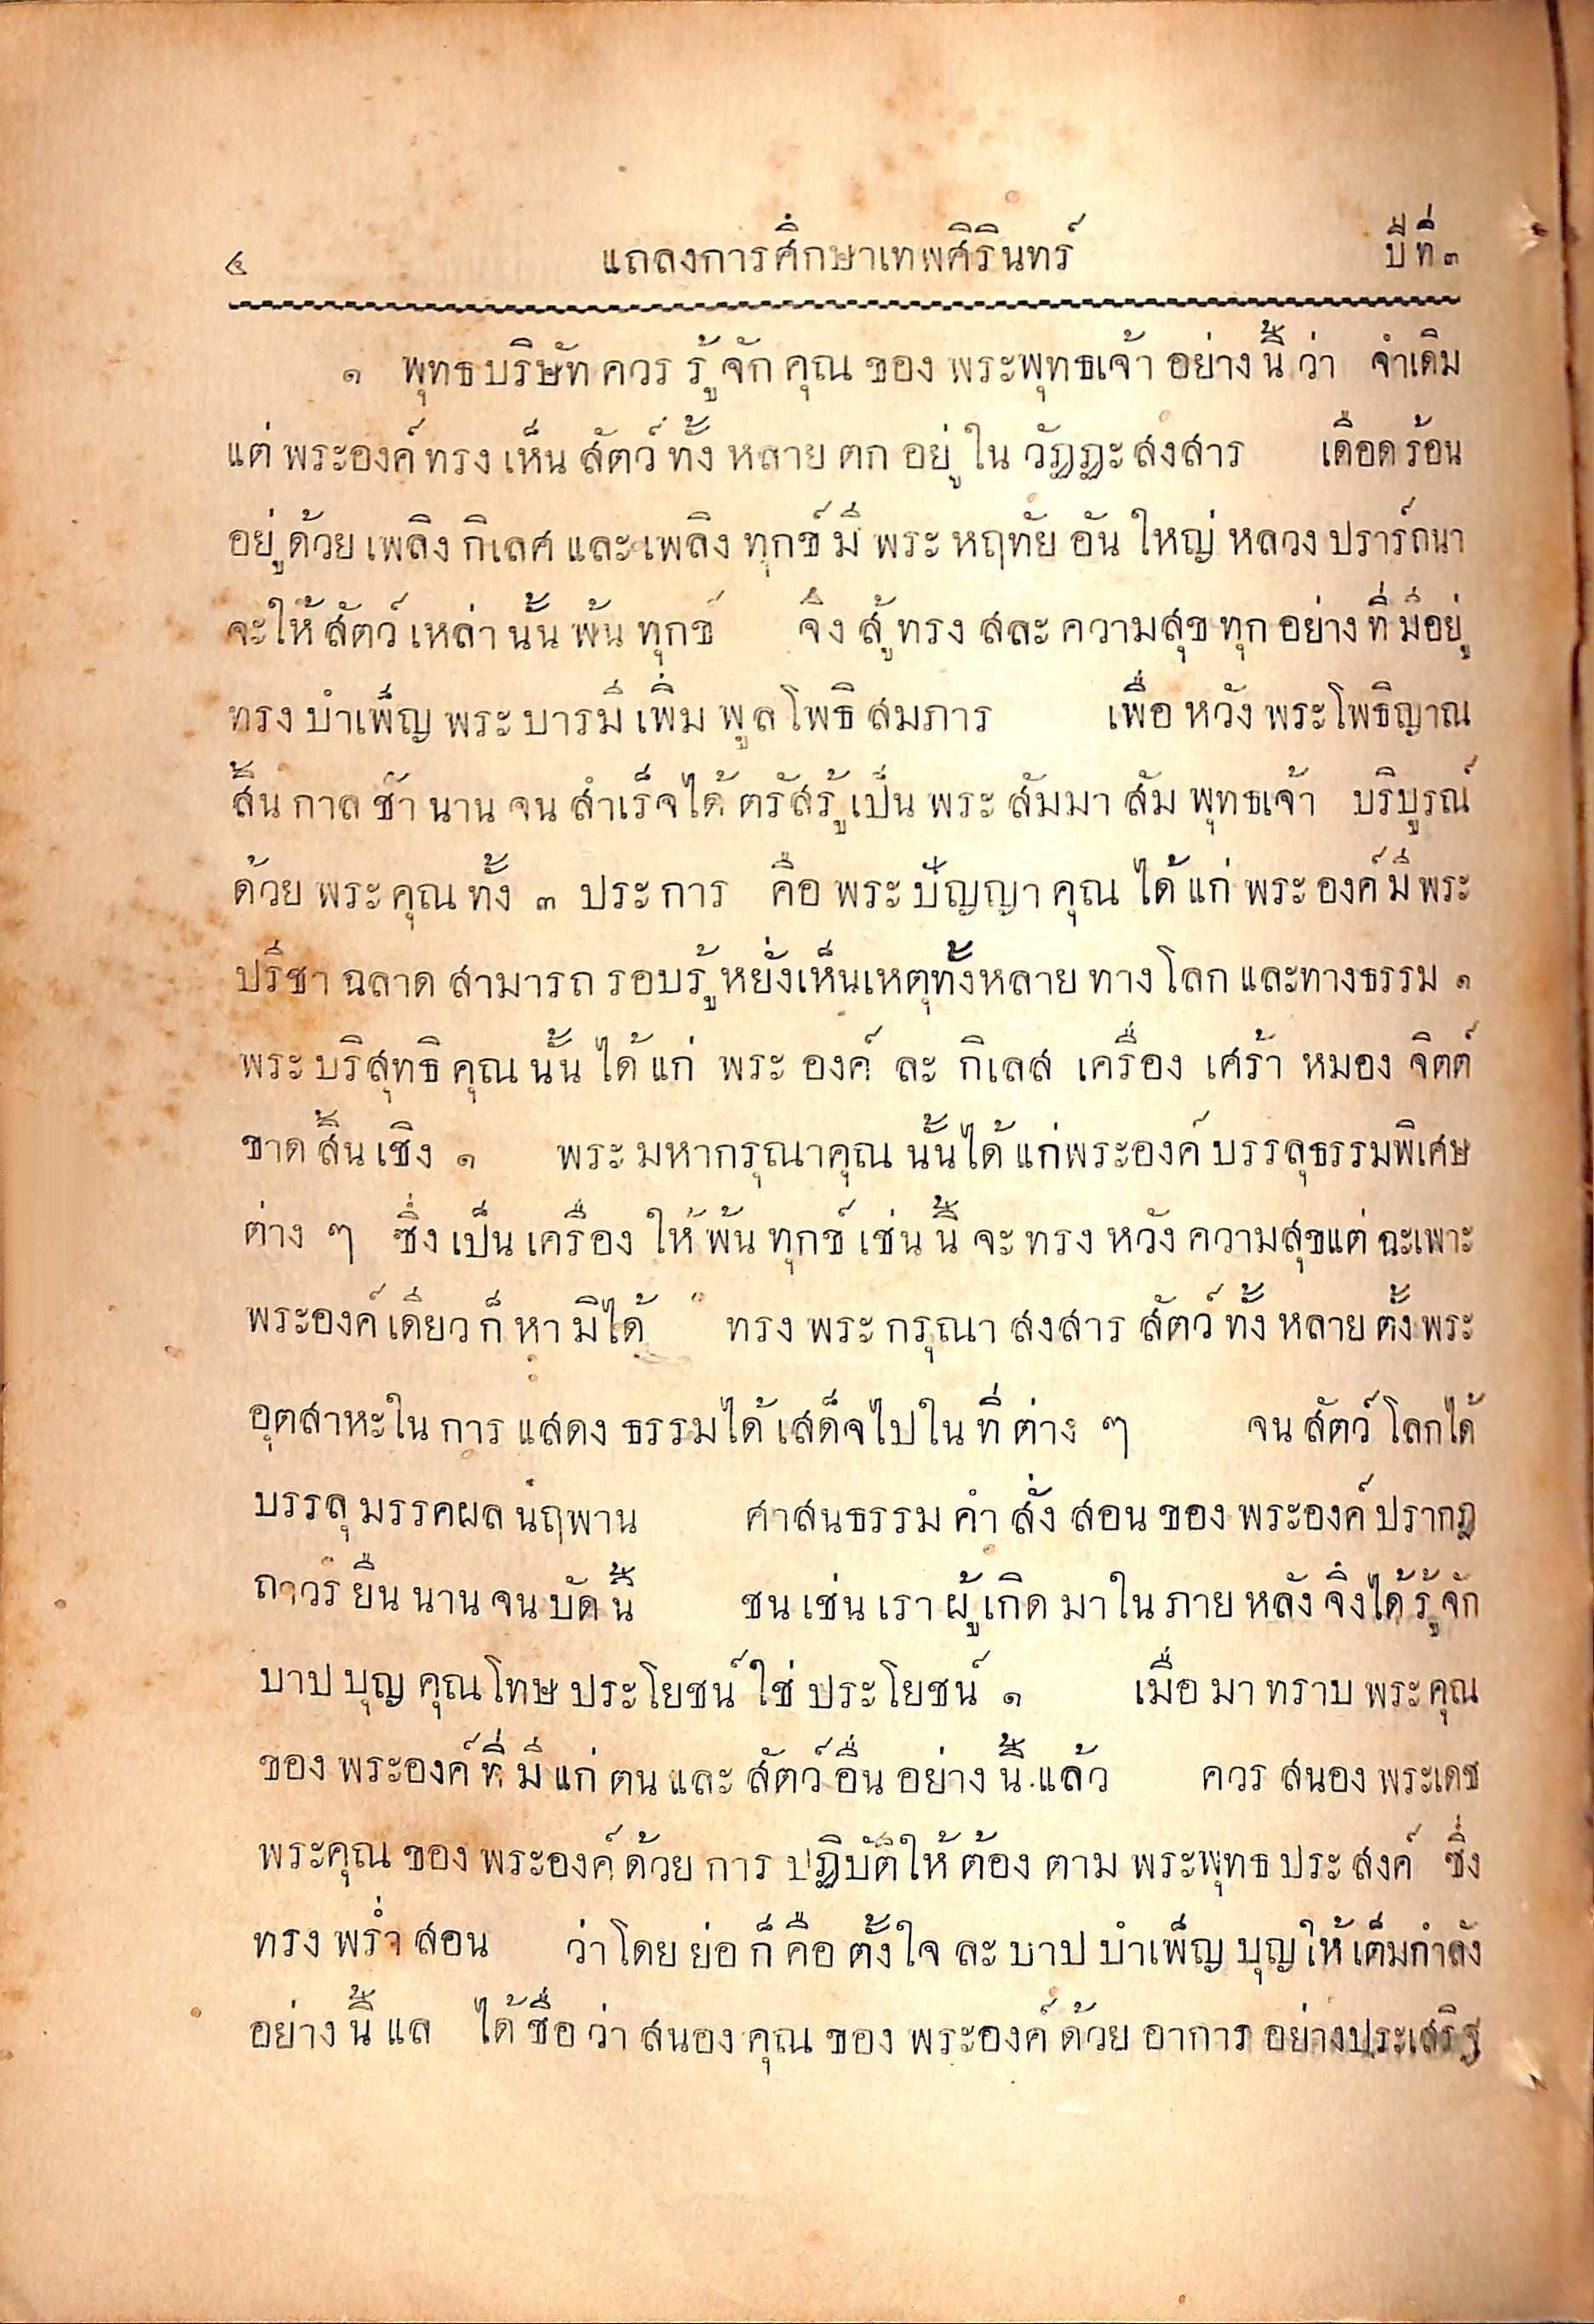 ๔ แถลงการศึกษาเทพศิรินทร์ ปีที่ ๓
๑ พุทธบริษัทควรรู้จักคุณของพระพุทธเจ้าอย่างนี้ว่า จำเดิม
แต่พระองค์ทรงเห็นสัตว์ทั้งหลายตกอยู่ในวัฏฏะสงสาร เดือดร้อน
อยู่ด้วยเพลิงกิเลศและเพลิงทุกข์มีพระหฤทัยอันใหญ่หลวงปรารถนา
จะให้สัตว์เหล่านั้นพ้นทุกข์ จึงสู้ทรงสละความสุขทุกอย่างที่มีอยู่
ทรงบำเพ็ญพระบารมีเพิ่มพูลโพธิสมภาร เพื่อหวังพระโพธิญาณ
สิ้นกาลช้านานจนสำเร็จได้ตรัสรู้เป็นพระสัมมาสัมพุทธเจ้า บริบูรณ์
ด้วยพระคุณทั้ง ๓ ประการ คือพระปัญญาคุณได้แก่พระองค์มีพระ
ปรีชาฉลาดสามารถรอบรู้หยั่งเห็นเหตุทั้งหลายทางโลกและทางธรรม ๑
พระบริสุทธิคุณนั้นได้แก่ พระองค์ ละ กิเลส เครื่อง เศร้า หมอง จิตต์
ขาดสิ้นเชิง ๑ พระมหากรุณาคุณนั้นได้แก่พระองค์บรรลุธรรมพิเศษ
ต่าง ๆ ซึ่งเป็นเครื่องให้พ้นทุกข์เช่นนี้จะทรงหวังความสุขแต่ฉะเพาะ
พระองค์เดียวก็หามิได้ ทรงพระกรุณาสงสารสัตว์ทั้งหลายตั้งพระ
อุตสาหะในการแสดงธรรมได้เสด็จไปในที่ต่าง ๆ จนสัตว์โลกได้
บรรลุมรรคผลนฤพาน ศาสนธรรมคำสั่งสอนของพระองค์ปรากฏ
ถาวรยืนนานจนบัดนี้ ชนเช่นเราผู้เกิดมาในภายหลังจึงได้รู้จัก
บาปบุญคุณโทษประโยชน์ใช่ประโยชน์ ๑ เมื่อมาทราบพระคุณ
ของพระองค์ที่มีแก่ตนและสัตว์อื่นอย่างนี้แล้ว ควรสนองพระเดช
พระคุณของพระองค์ด้วยการปฏิบัติให้ต้องตามพระพุทธประสงค์ ซึ่ง
ทรงพร่ำสอน ว่าโดยย่อก็คือตั้งใจละบาปบำเพ็ญบุญให้เต็มกำลัง
อย่างนี้แล ได้ชื่อว่าสนองคุณของพระองค์ด้วยอาการอย่างประเสริฐ